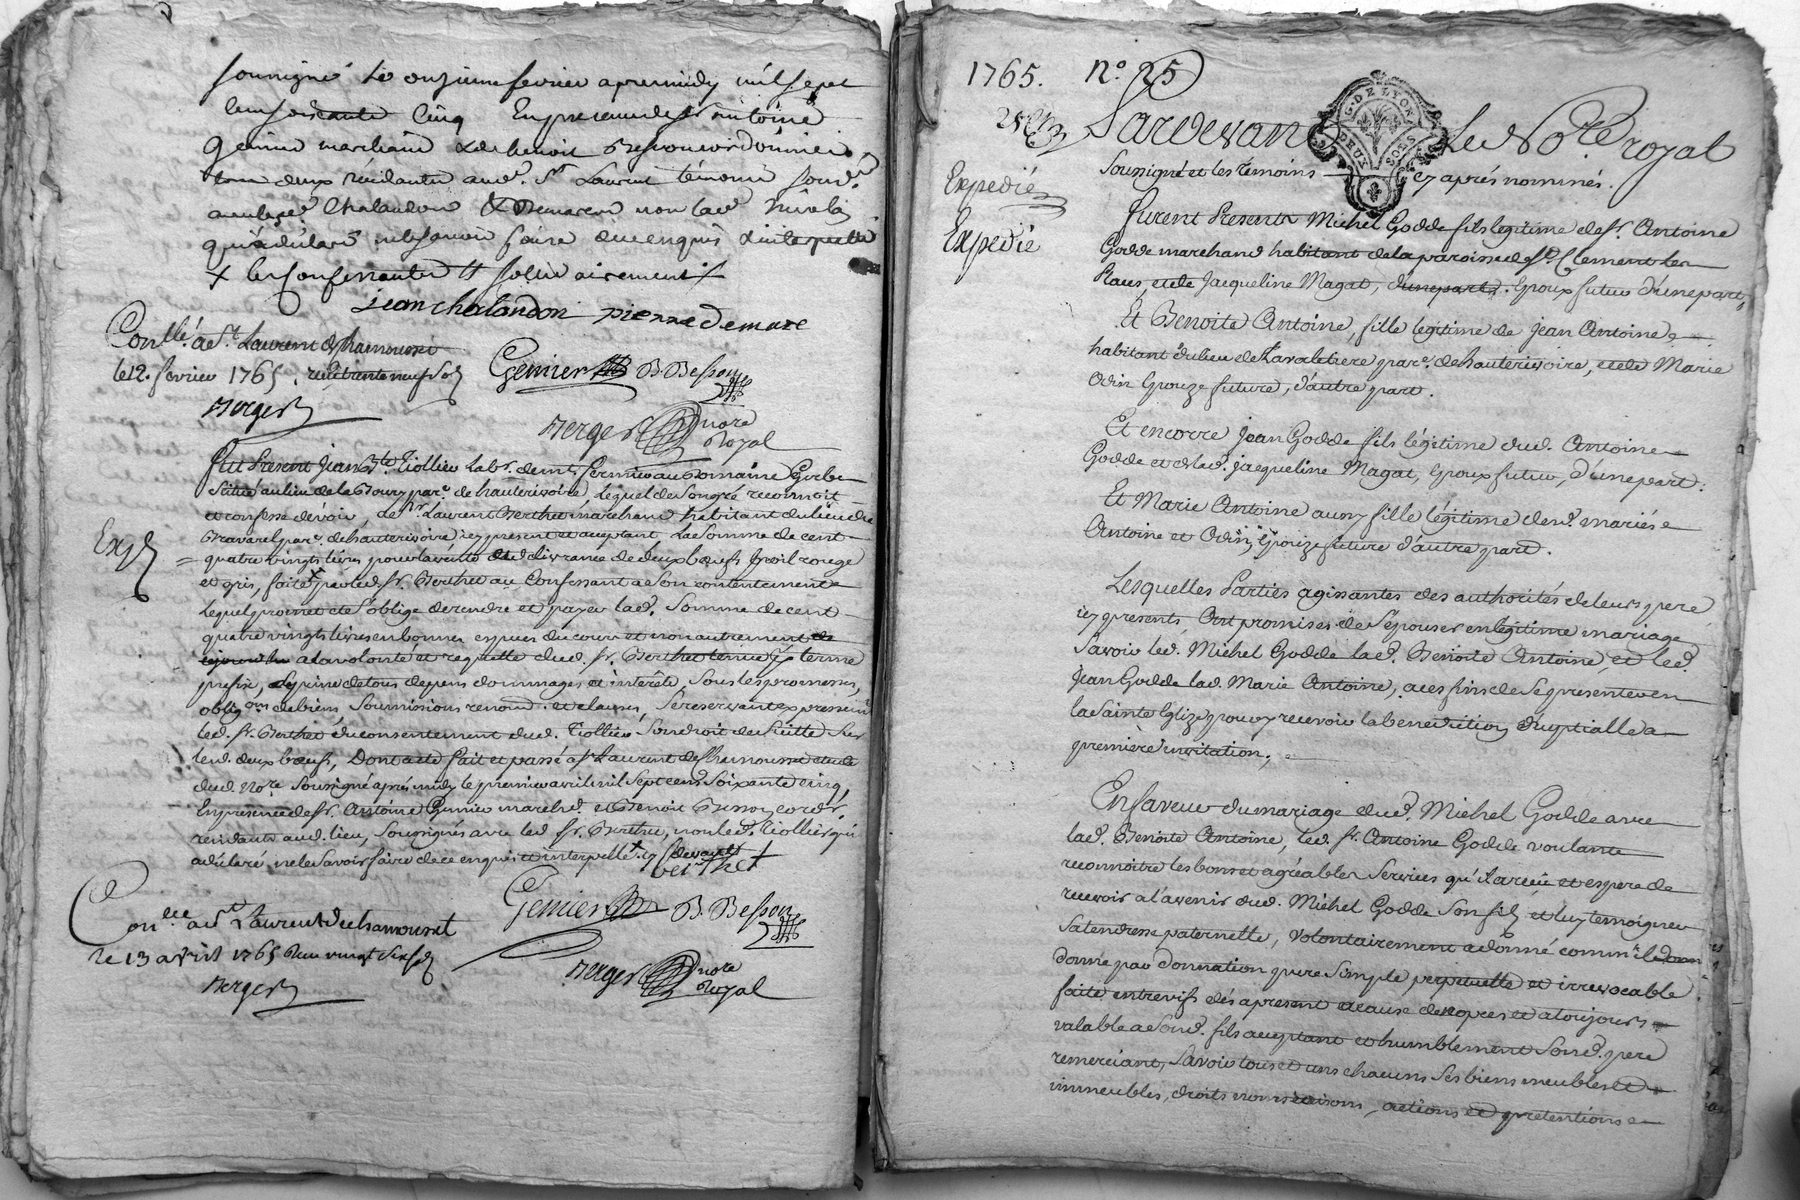 soussigné le onzieme fevrier apres midy mil sept
cent soixante Cinq En presence de Sr Antoine
Genier marchand et de benoit Besson cordonnier
tous deux residants aud. St Laurent témoins
Chalandon & Demare non lad.
faire de ce enquis & interpellé
jean chalandon pierre demare
Conllé. a St. Laurent de Chamousset
le 12. fevrier 1765. recu trente neuf sols
Genier B. Besson
Berger
Berger nore
Royal
Fut Present Jean Bte. Tiollier Labr.
Situé au lieu de la par. de hauterivoire, lequel de Son gré reconnoit
et confesse devoir, à Sr. Laurent Berthet marchand habitant du lieu de
par. de hauterivoire icy present et acceptant, La Somme de cent
Exp.
quatre vingts livres pour la vente et delivrance de deux boeufs poil rouge
et gris, faite par led. Sr. Berthet au Confessant a Son contentement
Lequel promet et s'oblige de rendre et payer lad. Somme de cent
quatre vingts livres en bonnes especes du cours et non autrement
a la volonté et requette dud. Sr. Berthet
prefix, a peine de tous depens dommages et interêts, Sous les promesses,
oblig.ons de biens, Soumissions renon. et clauses, Se reservant expressement
led. Sr. Berthet du consentement dud. Tiollier Son droit de Suitte Sur
lesd. deux boeufs, Dont acte fait et passé a St Laurent de Chamousset etude
dud. No.re Soussigné après midy le premier avril mil Sept cent Soixante cinq,
En presence de Sr. Antoine Genier march.d et Benoit Besson cord.r
residants aud. lieu, Soussignés avec led. Sr. Berthet, non led. Tiollier qui
a déclaré ne le Savoir faire de ce enquis et interpellé
berthet
Genier B. Besson
Con.llé a St Laurent de chamousset
le 13 avril 1765 Recu vingt Six s.
Berger nore
Royal
Berger
1765. No. 25
G. DE LYON
DEUX SOLS
Pardevant Le No.re royal
Soussigné et les temoins cy après nommés.
Expedié
Expedié
furent Presents Michel Godde fils legitime de Sr. Antoine
Godde marchand habitant de la paroisse de St. Clement les
Places, et de Jacqueline Magat, Epoux futur d'une part,
Et Benoite Antoine, fille legitime de jean Antoine
habitant du lieu de par. de hauterivoire, et de Marie
Odin Epouze future, d'autre part.
Et encorre Jean Godde fils légitime dud. Antoine
Godde et de lad. jacqueline Magat, Epoux futur, d'une part.
Et Marie Antoine aussy fille légitime desd. mariés
Antoine et Odin, Epouze future d'autre part.
Lesquelles Parties agissantes des authorités de leurs pere
icy presents Ont promis de S'épouser en legitime mariage
Savoir led. Michel Godde lad. Benoite Antoine, et led.
Jean Godde lad. Marie Antoine, a ces fins de Se presenter en
la Sainte Eglize pour y recevoir la benediction Nuptialle a
premiere invitation,
En faveur du mariage dud. Michel Godde avec
lad. Benoite Antoine, led. Sr. Antoine Godde voulant
reconnoitre les bons et agréables Services qu'il a reçu et espere de
recevoir a l'avenir dud. Michel Godde Son fils et luy temoigner
Sa tendresse paternelle, volontairement a donné comm'il
donne par donnation pure Simple perpetuelle et irrevocable
faite entrevifs dés apresent a cause de nopces et a toujours
valable a Sond. fils acceptant et humblement Sond. pere
remerciant, Savoir tous et uns chacuns Ses biens meubles et
immeubles, droits noms raisons, actions et pretentions